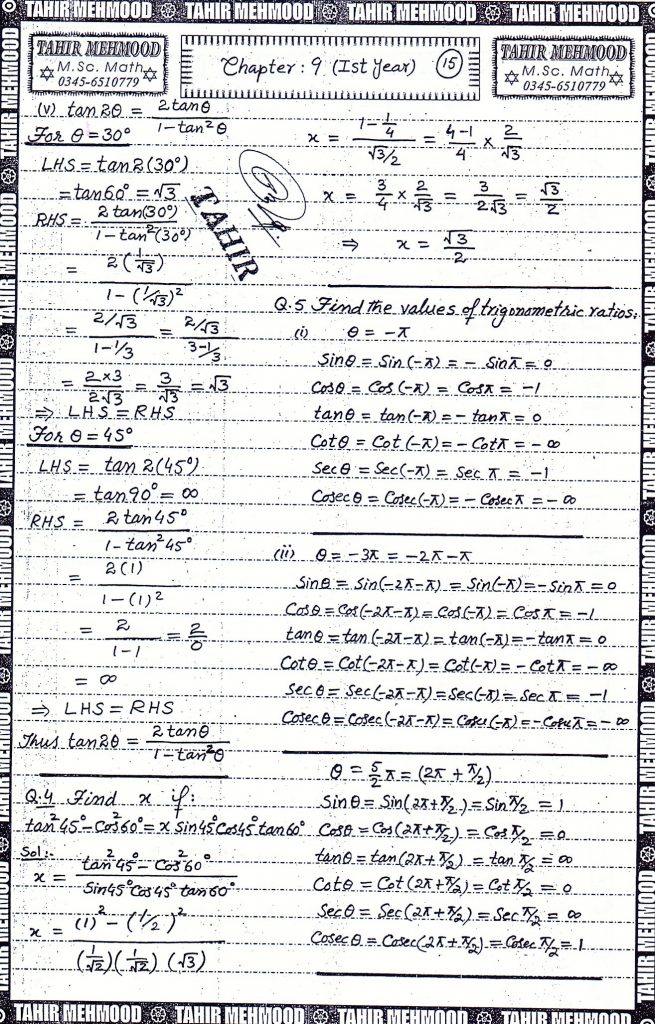 TAHIR MEHMOOD TAHIR MEHMOOD TAHIR MEHMOOD TAHIR MEHMOOD
TAHIR MEHMOOD
M.Sc. Math
0345-6510779
Chapter : 9 (Ist Year) 15
TAHIR MEHMOOD
M.Sc. Math
0345-6510779
(v) tan 2θ = 2 tanθ / 1 - tan²θ
For θ = 30°
LHS = tan 2(30°)
= tan 60° = √3
RHS = 2 tan(30°) / 1 - tan²(30°)
= 2 (1/√3) / 1 - (1/√3)²
= 2/√3 / 1 - 1/3 = 2/√3 / 3-1/3
= 2×3 / 2√3 = 3/√3 = √3
⇒ LHS = RHS
For θ = 45°
LHS = tan 2(45°)
= tan 90° = ∞
RHS = 2 tan 45° / 1 - tan² 45°
= 2(1) / 1 - (1)²
= 2 / 1-1 = 2/0
= ∞
⇒ LHS = RHS
Thus tan 2θ = 2 tanθ / 1 - tan²θ
Q.4 Find x if :
tan²45° - Cos²60° = x Sin45° Cos45° tan60°
Sol:-
x = tan²45° - Cos²60° / Sin45° Cos45° tan60°
x = (1)² - (1/2)² / (1/√2)(1/√2)(√3)
TAHIR
x = 1 - 1/4 / √3/2 = 4-1/4 × 2/√3
x = 3/4 × 2/√3 = 3/2√3 = √3/2
⇒ x = √3/2
Q.5 Find the values of trigonometric ratios:
(i) θ = -π
Sinθ = Sin(-π) = - Sinπ = 0
Cosθ = Cos(-π) = Cosπ = -1
tanθ = tan(-π) = - tanπ = 0
Cotθ = Cot(-π) = - Cotπ = - ∞
Secθ = Sec(-π) = Sec π = -1
Cosecθ = Cosec(-π) = - Cosecπ = - ∞
(ii) θ = -3π = -2π-π
Sinθ = Sin(-2π-π) = Sin(-π) = - Sinπ = 0
Cosθ = Cos(-2π-π) = Cos(-π) = Cosπ = -1
tanθ = tan(-2π-π) = tan(-π) = - tanπ = 0
Cotθ = Cot(-2π-π) = Cot(-π) = - Cotπ = - ∞
Secθ = Sec(-2π-π) = Sec(-π) = Sec π = -1
Cosecθ = Cosec(-2π-π) = Cosec(-π) = - Cosecπ = - ∞
θ = 5/2 π = (2π + π/2)
Sinθ = Sin(2π+π/2) = Sin π/2 = 1
Cosθ = Cos(2π+π/2) = Cos π/2 = 0
tanθ = tan(2π+π/2) = tan π/2 = ∞
Cotθ = Cot(2π+π/2) = Cot π/2 = 0
Secθ = Sec(2π+π/2) = Sec π/2 = ∞
Cosecθ = Cosec(2π+π/2) = Cosec π/2 = 1
TAHIR MEHMOOD TAHIR MEHMOOD TAHIR MEHMOOD TAHIR MEHMOOD